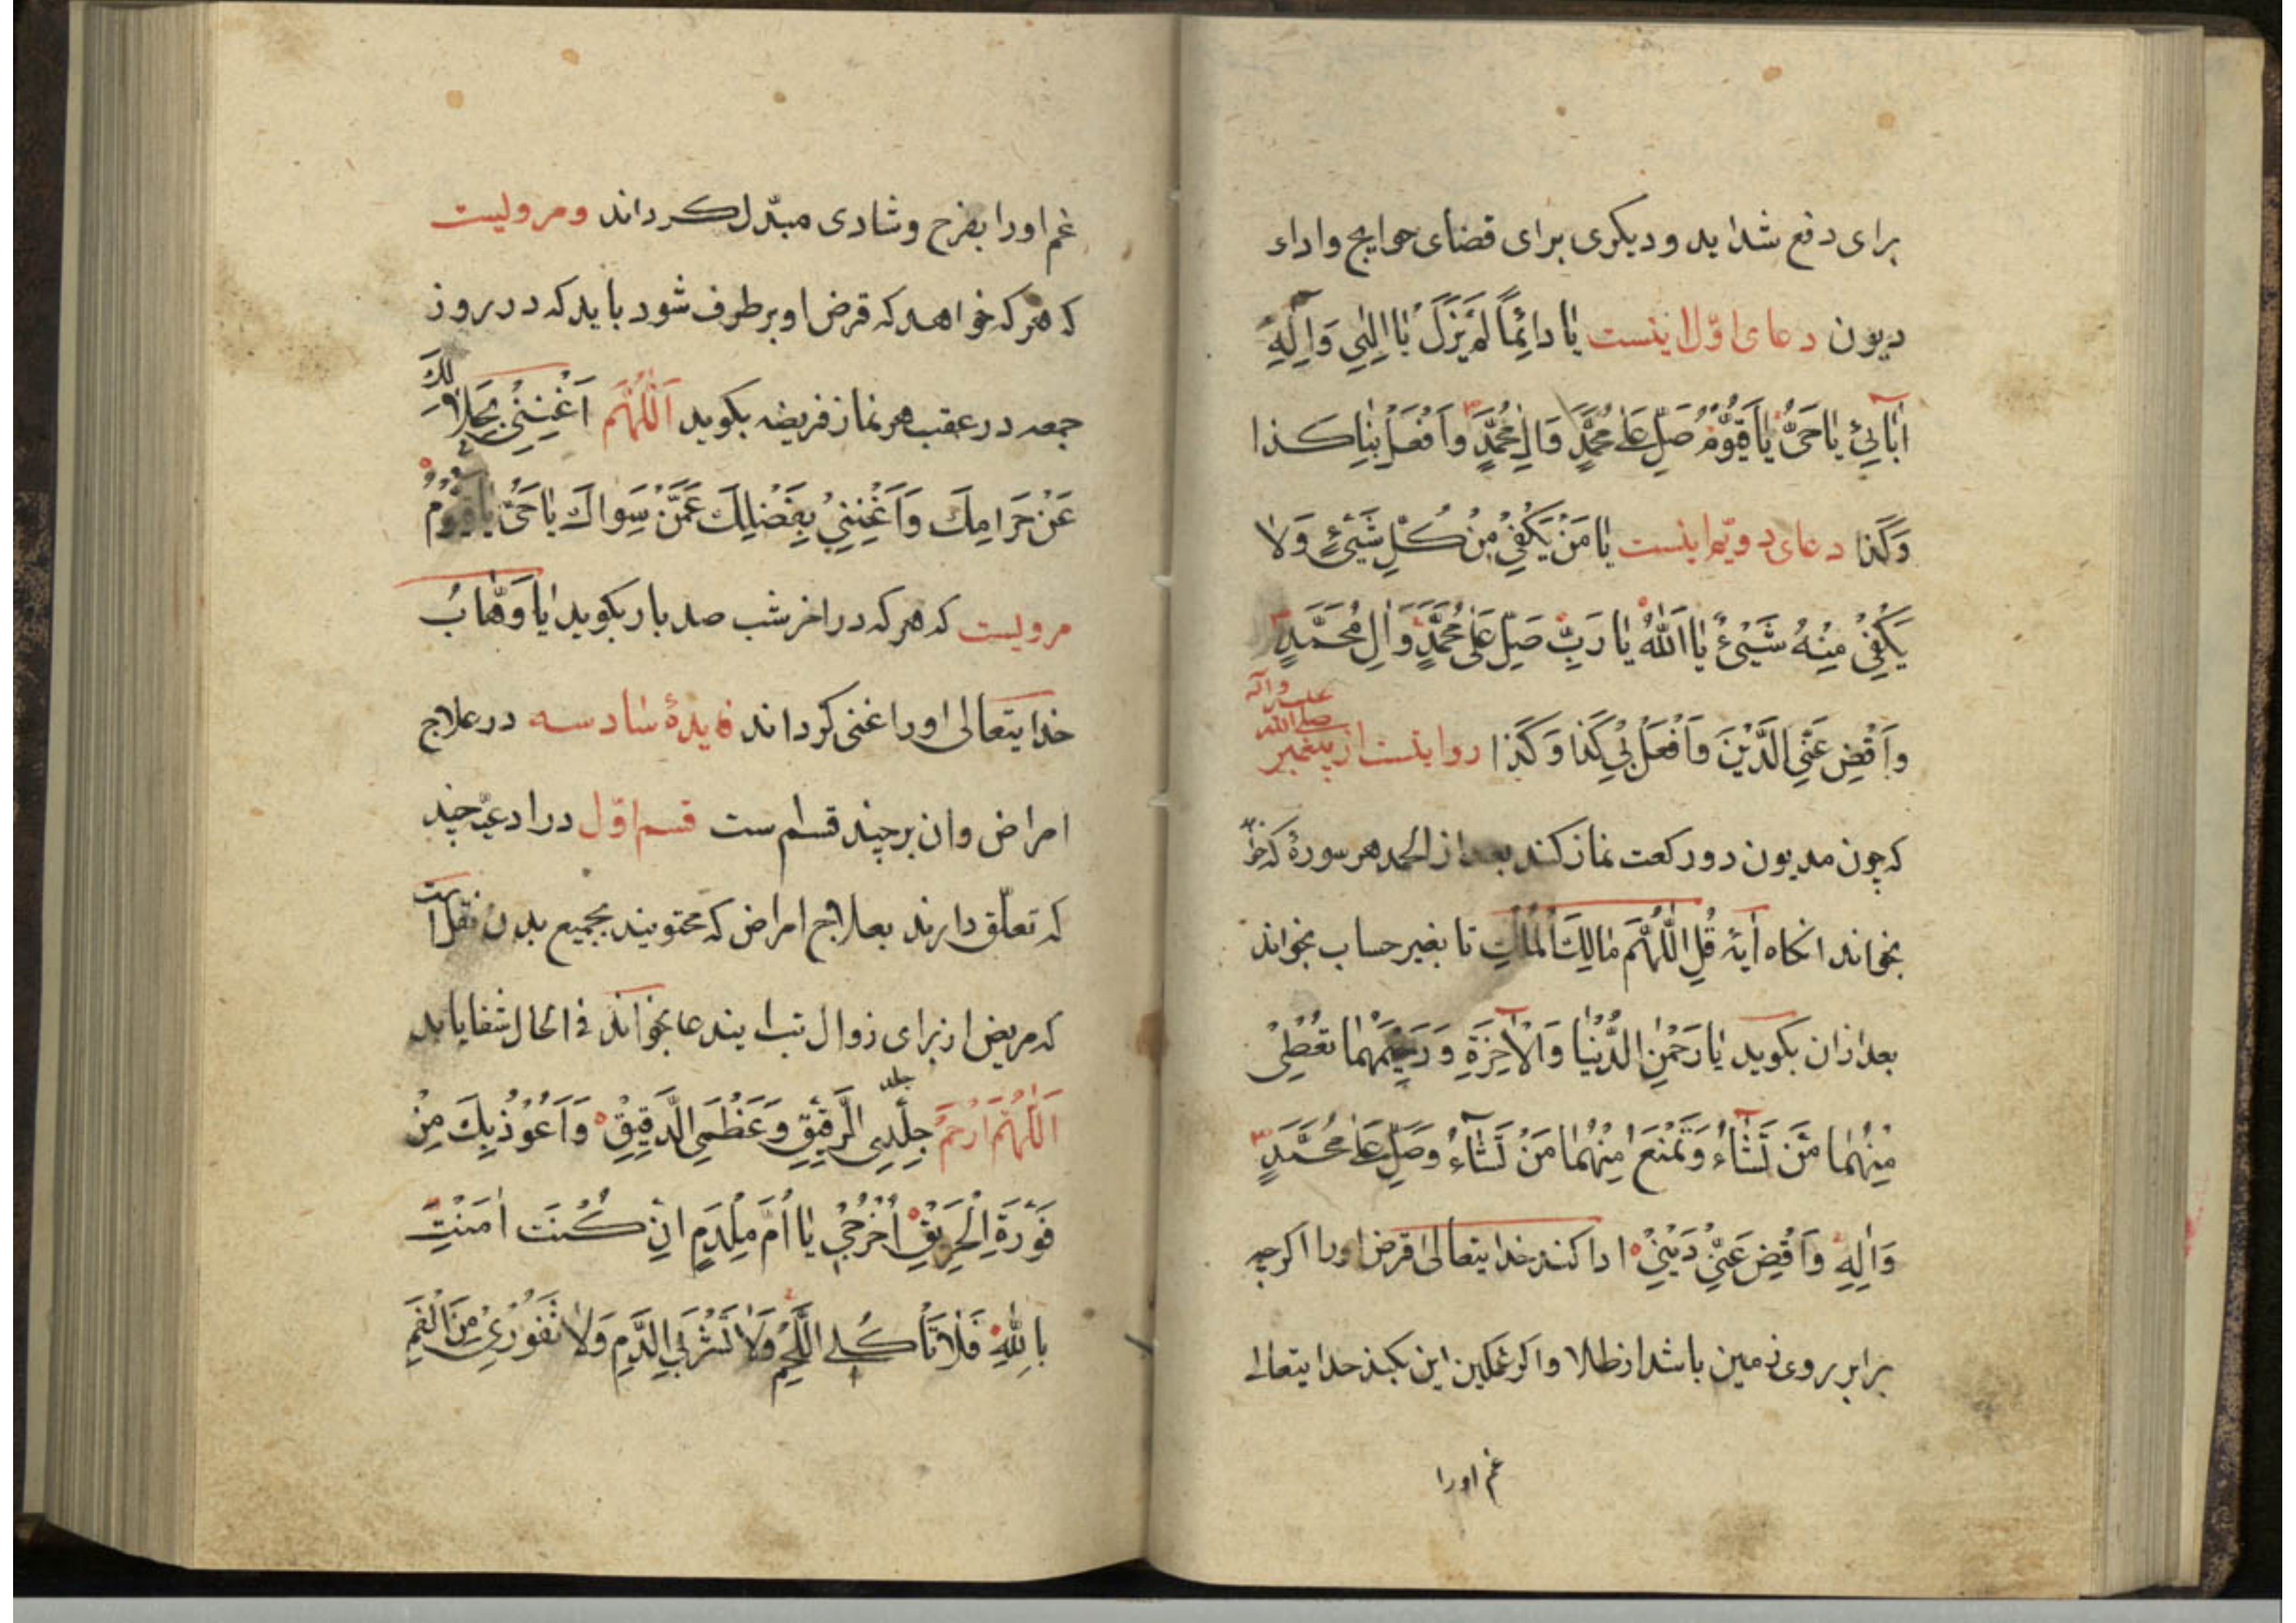 برای دفع شداید و دیکری برای قضای حوایج و اداء
دیون دعای اوّل اینست یا دائِماً لَمْ یَزَلْ یا اِلٰهِی وَاِلٰهَ
اٰبٰائِی یٰا حَیُّ یٰا قَیُّومُ صَلِّ عَلیٰ مُحَمَّدٍ وَاٰلِ مُحَمَّدٍ وَافْعَلْ بِنٰا کَذا
وَکَذا دعای دویّم اینست یٰا مَنْ یَکْفِی مِنْ کُلِّ شَیْئٍ وَلٰا
یَکْفِی مِنْهُ شَیْئٌ یٰا اَللّٰهُ یٰا رَبِّ صَلِّ عَلیٰ مُحَمَّدٍ وَاٰلِ مُحَمَّدٍ
وَاقْضِ عَنِّی الَّدیْنَ وَافْعَلْ بِی کَذا وَکَذا روایتست از پیغمبر صلی الله علیه وآله
که چون مدیون دو رکعت نماز کند بعد از الحمد هر سورهٔ که خواهد
بخواند انکاه آیهٔ قُلِ اللّٰهُمَّ مٰالِكَ الْمُلْكِ تا بغیر حساب بخواند
بعد ازان بکوید یٰا رَحْمٰنَ الدُّنْیٰا وَالْاٰخِرَةِ وَرَحِیمَهُمٰا تُعْطِی
مِنْهُمٰا مَنْ تَشٰاءُ وَتَمْنَعُ مِنْهُمٰا مَنْ تَشٰاءُ وَصَلِّ عَلیٰ مُحَمَّدٍ
وَاٰلِهِ وَاقْضِ عَنِّی دَیْنِی ادا کند خدایتعالی قرض اورا اکرچه
برابر روی زمین باشد از طلا واکر غمکین این بکند خدایتعالی
غم اورا
غم اورا بفرح وشادی مبدّل کرداند ومرویست
که هر که خواهد که قرض او برطرف شود باید که در روز
جمعه در عقب هر نماز فریضه بکوید اَللّٰهُمَّ اَغْنِنِی بِحَلٰالِكَ
عَنْ حَرٰامِكَ وَاَغْنِنِی بِفَضْلِكَ عَمَّنْ سِوٰاكَ یٰا حَیُّ یٰا قَیُّومُ
مرویست که هر که در اخر شب صد بار بکوید یٰا وَهّٰابُ
خدایتعالی اورا غنی کرداند فایدهٔ سادسه در علاج
امراض وان بر چند قسم است قسم اوّل در ادعیهٔ چند
که تعلّق دارند بعلاج امراض که محتویند بجمیع بدن نقل است
که مریض از برای زوال تب ایندعا بخواند فی الحال شفا یابد
اَللّٰهُمَّ ارْحَمْ جِلْدِیَ الرَّقِیقَ وَعَظْمِیَ الدَّقِیقَ وَاَعُوذُ بِكَ مِنْ
فَوْرَةِ الْحَرِیقِ اُخْرُجِی یٰا اُمَّ مِلْدَمٍ اِنْ کُنْتِ اٰمَنْتِ
بِاللّٰهِ فَلٰا تَأْکُلِی اللَّحْمَ وَلٰا تَشْرَبِی الدَّمَ وَلٰا تَفُورِی مِنَ الْفَمِ